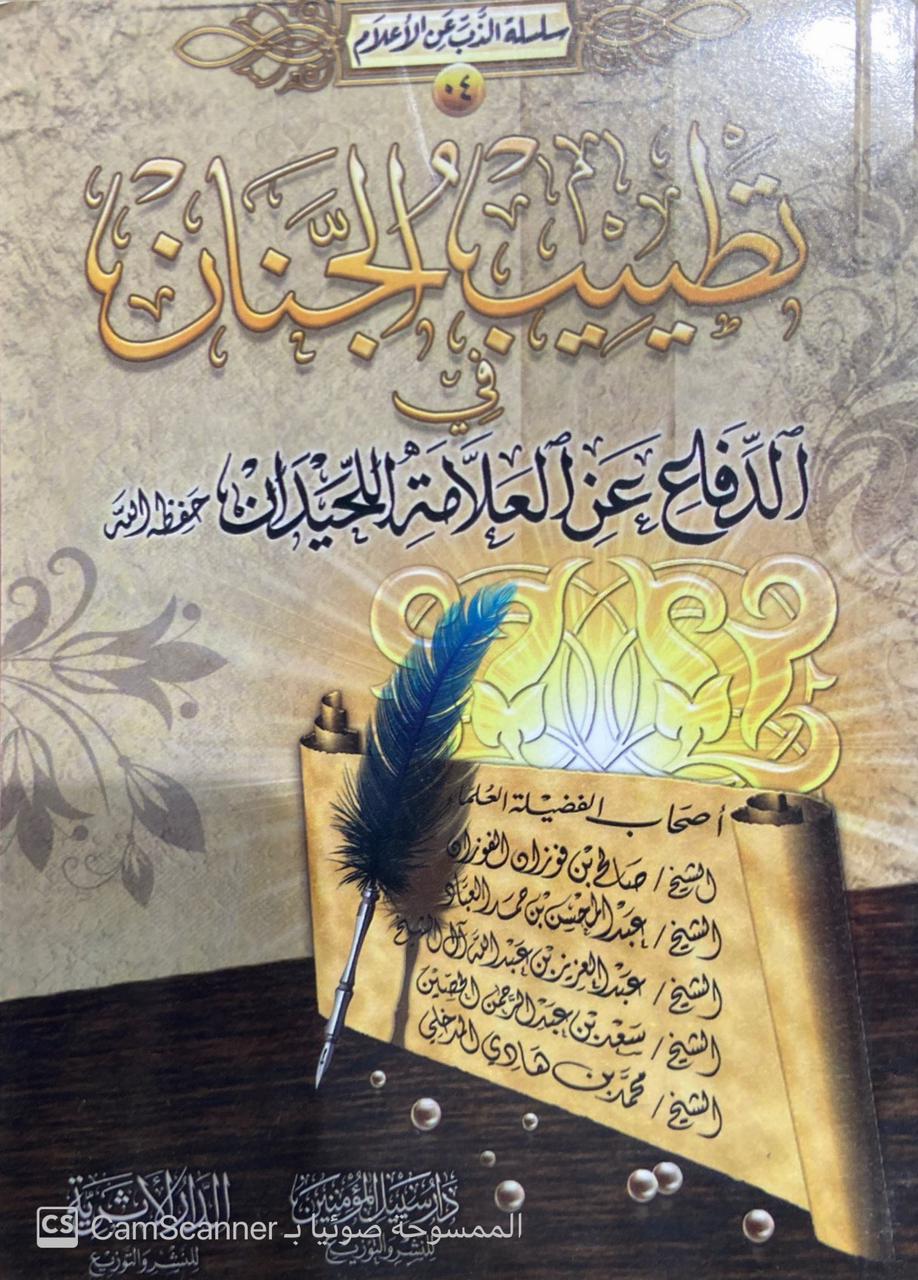 سلسلة الذب عن الأعلام
٠٤
تطييب الجنان
في
الدفاع عن العلامة اللحيدان حفظه الله
أصحاب الفضيلة العلماء
الشيخ / صالح بن فوزان الفوزان
الشيخ / عبد المحسن بن حمد العباد
الشيخ / عبد العزيز بن عبد الله آل الشيخ
الشيخ / سعد بن عبد الرحمن الحصين
الشيخ / محمد بن هادي المدخلي
دار سبيل المؤمنين
للنشر والتوزيع
الدار الأثرية
للنشر والتوزيع
الممسوحة ضوئيا بـ CamScanner
CS